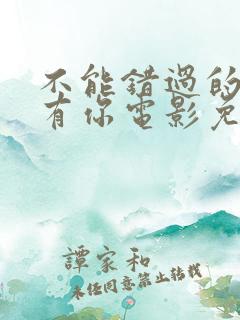 不能错過的
有你電影免
譚家和
未经同意禁止转载